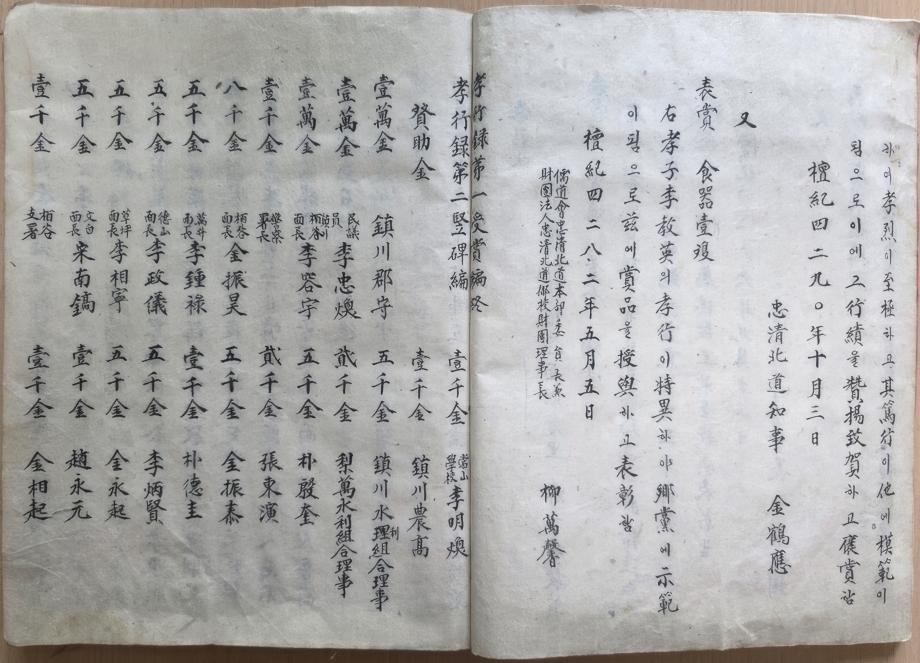 하야孝烈이至極하고其篤行이他에模範이
됨으로이에그行績을贊揚致賀하고褒賞함
檀紀四二九〇年十月三日
忠淸北道知事 金鶴應
又
表賞 食器壹坆
右孝子李敎英의孝行이特異하야鄕黨에示範
이됨으로玆에賞品을授與하고表彰함
檀紀四二八二年五月五日
儒道會忠淸北道本部委員長兼
財團法人忠淸北道鄕校財團理事長
柳萬馨
孝行録第一受賞編終
孝行録第二竪碑編
贊助金
壹千金 常山學校 李明煥
壹千金 鎭川農高
壹萬金 鎭川郡守
五千金 鎭川水利組合理事
壹萬金 民議員 李忠煥
貳千金 梨萬水利組合理事
壹萬金 栢谷面長 李容宇
五千金 朴殷奎
壹千金 警察署長
貳千金 張東演
八千金 栢谷面長 金振昊
五千金 金振泰
五千金 萬升面長 李鍾祿
壹千金 朴德圭
五千金 德山面長 李政儀
五千金 李炳賢
五千金 草坪面長 李相寧
五千金 金永起
五千金 文白面長 宋南鎬
壹千金 趙永元
壹千金 栢谷支署
壹千金 金相起